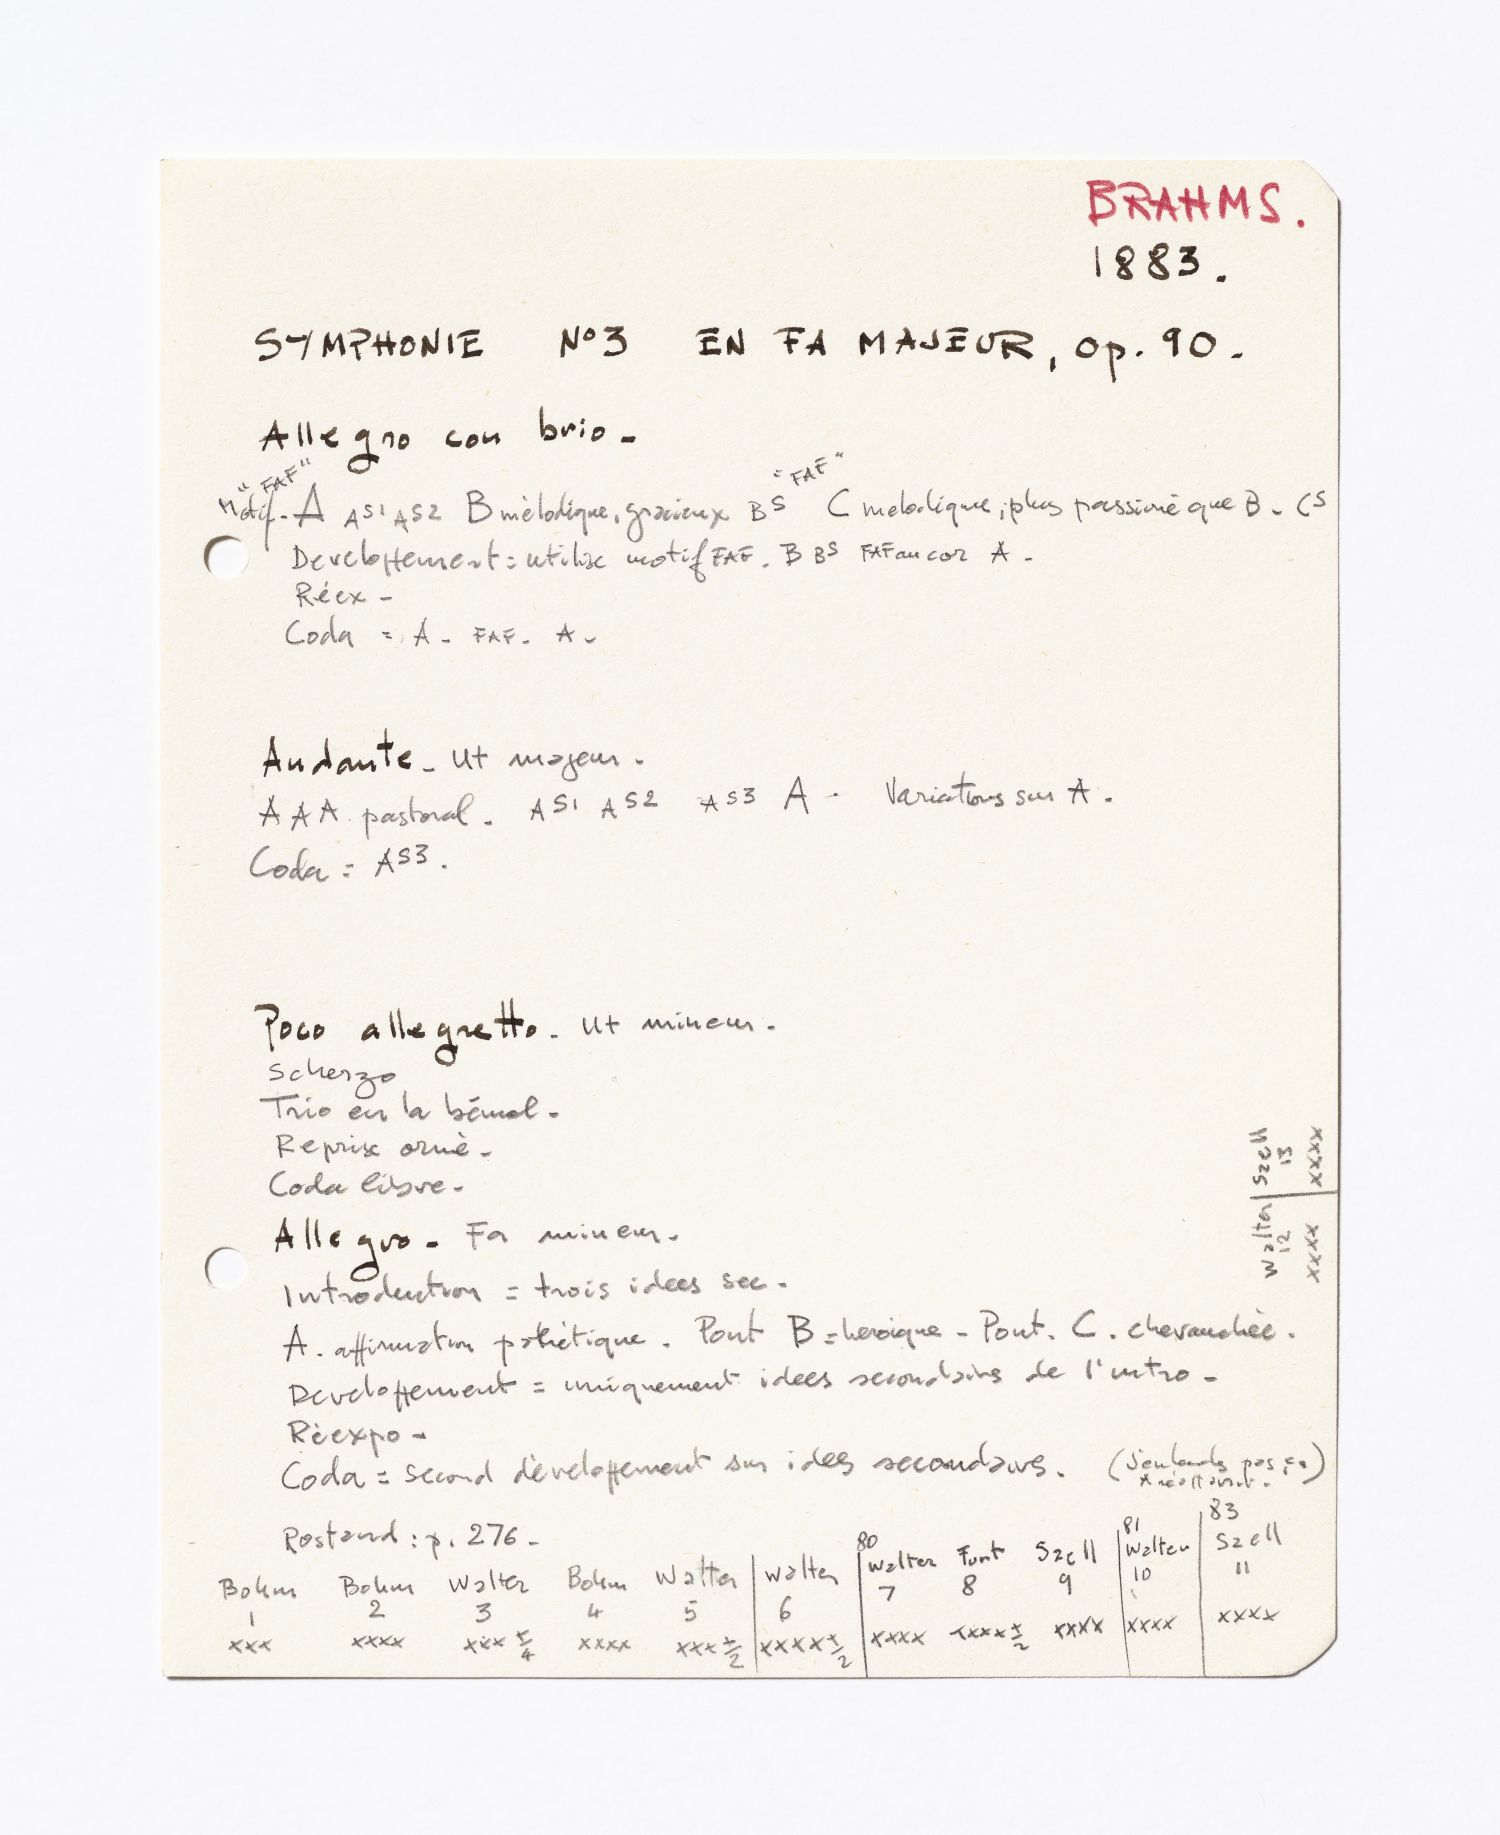 BRAHMS.
1883.
SYMPHONIE N°3 EN FA MAJEUR, op. 90.
Allegro con brio.
Motif "FAF" - A AS1 AS2 B mélodique, gracieux BS "FAF" C mélodique, plus passioné que B - CS
Developpement = utilise motif FAF. B BS FAF au cor A.
Réex -
Coda = A - FAF - A -
Andante - Ut majeur.
A A A pastoral. AS1 AS2 AS3 A - Variations sur A.
Coda = AS3.
Poco allegretto. Ut mineur.
Scherzo
Trio en la bémol.
Reprise orné.
Coda libre.
Allegro. Fa mineur.
Introduction = trois idees sec.
A. affirmation pathétique. Pont B = heroique - Pont. C. chevauchée.
Developpement = uniquement idees secondaires de l'intro.
Réexpo -
Coda = second développement sur idees secondaires. (J'entends pas ça
.)
Rostand : p. 276 -
80 81 83
Bohm Bohm Walter Bohm Walter Walter Walter Furt Szell Walter Szell
1 2 3 4 5 6 7 8 9 10 11
xxx xxxx xxx +/4 xxxx xxx +/2 xxxx +/2 xxxx xxxx +/2 xxxx xxxx xxxx
Walter Szell
12 13
xxxx xxxx